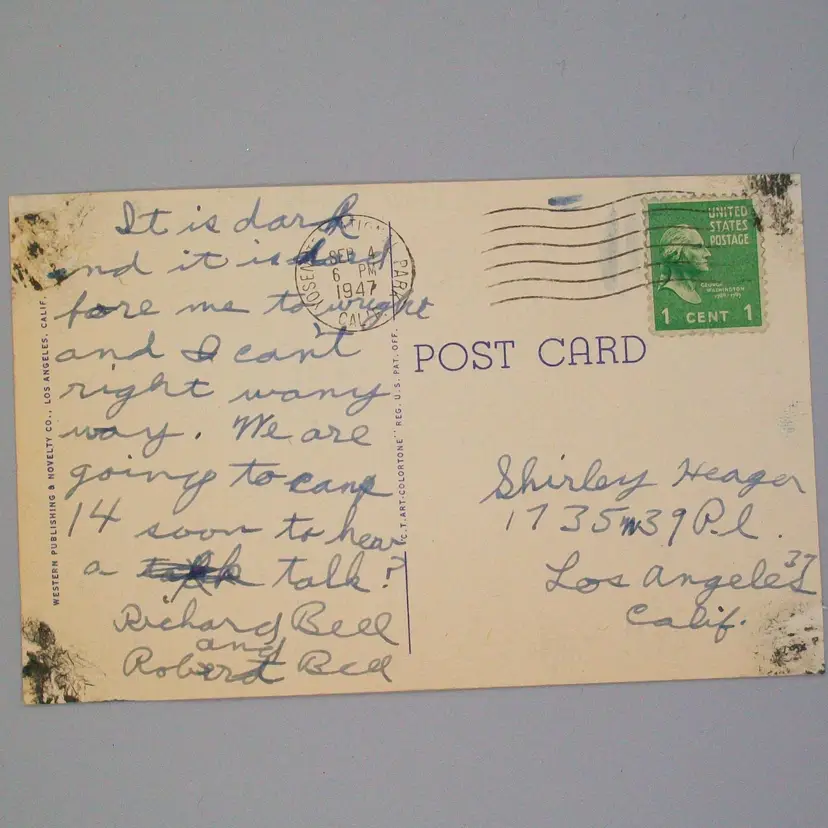 It is dark
and it is dard
fore me to wright
and I can't
right wany
way. We are
going to camp
14 soon to hear
a talk?
Richard Bell
and
Robert Bell
WESTERN PUBLISHING & NOVELTY CO., LOS ANGELES, CALIF.
"C.T. ART-COLORTONE" REG. U.S. PAT. OFF.
YOSEMITE NATIONAL PARK
SEP 4
6 PM
1947
CALIF.
UNITED
STATES
POSTAGE
GEORGE
WASHINGTON
1 CENT 1
POST CARD
Shirley Heager
1735 W 39 Pl.
Los Angeles 37
Calif.